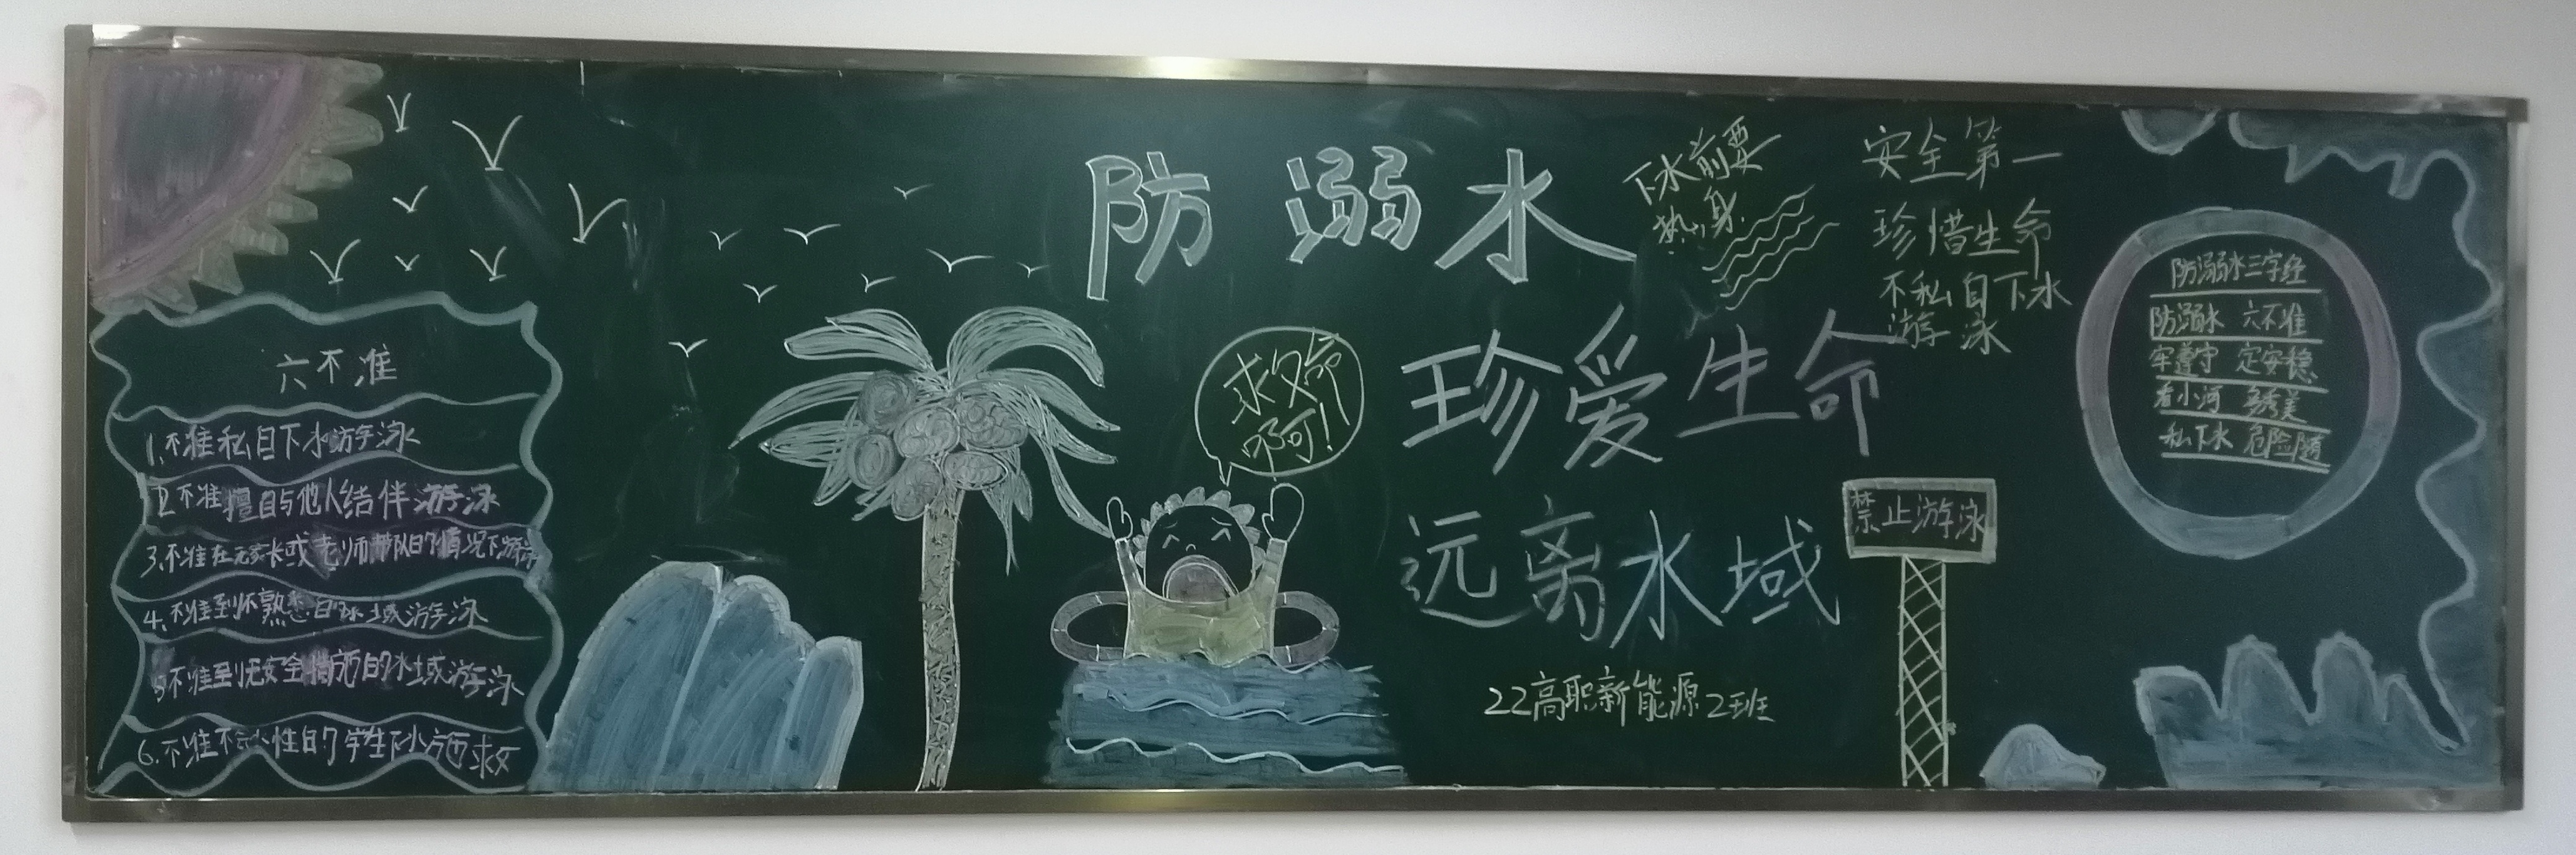 六不准
1.不准私自下水游泳
2.不准擅自与他人结伴游泳
3.不准在无家长或老师带队的情况下游泳
4.不准到不熟悉的水域游泳
5不准到无安全措施的水域游泳
6.不准不会水性的学生下水施救
防溺水
珍爱生命
远离水域
22高职新能源2班
救命
啊!
下水前要
热身
安全第一
珍惜生命
不私自下水
游泳
禁止游泳
防溺水三字经
防溺水 六不准
牢遵守 定安稳
看小河 多秀美
私下水 危险随